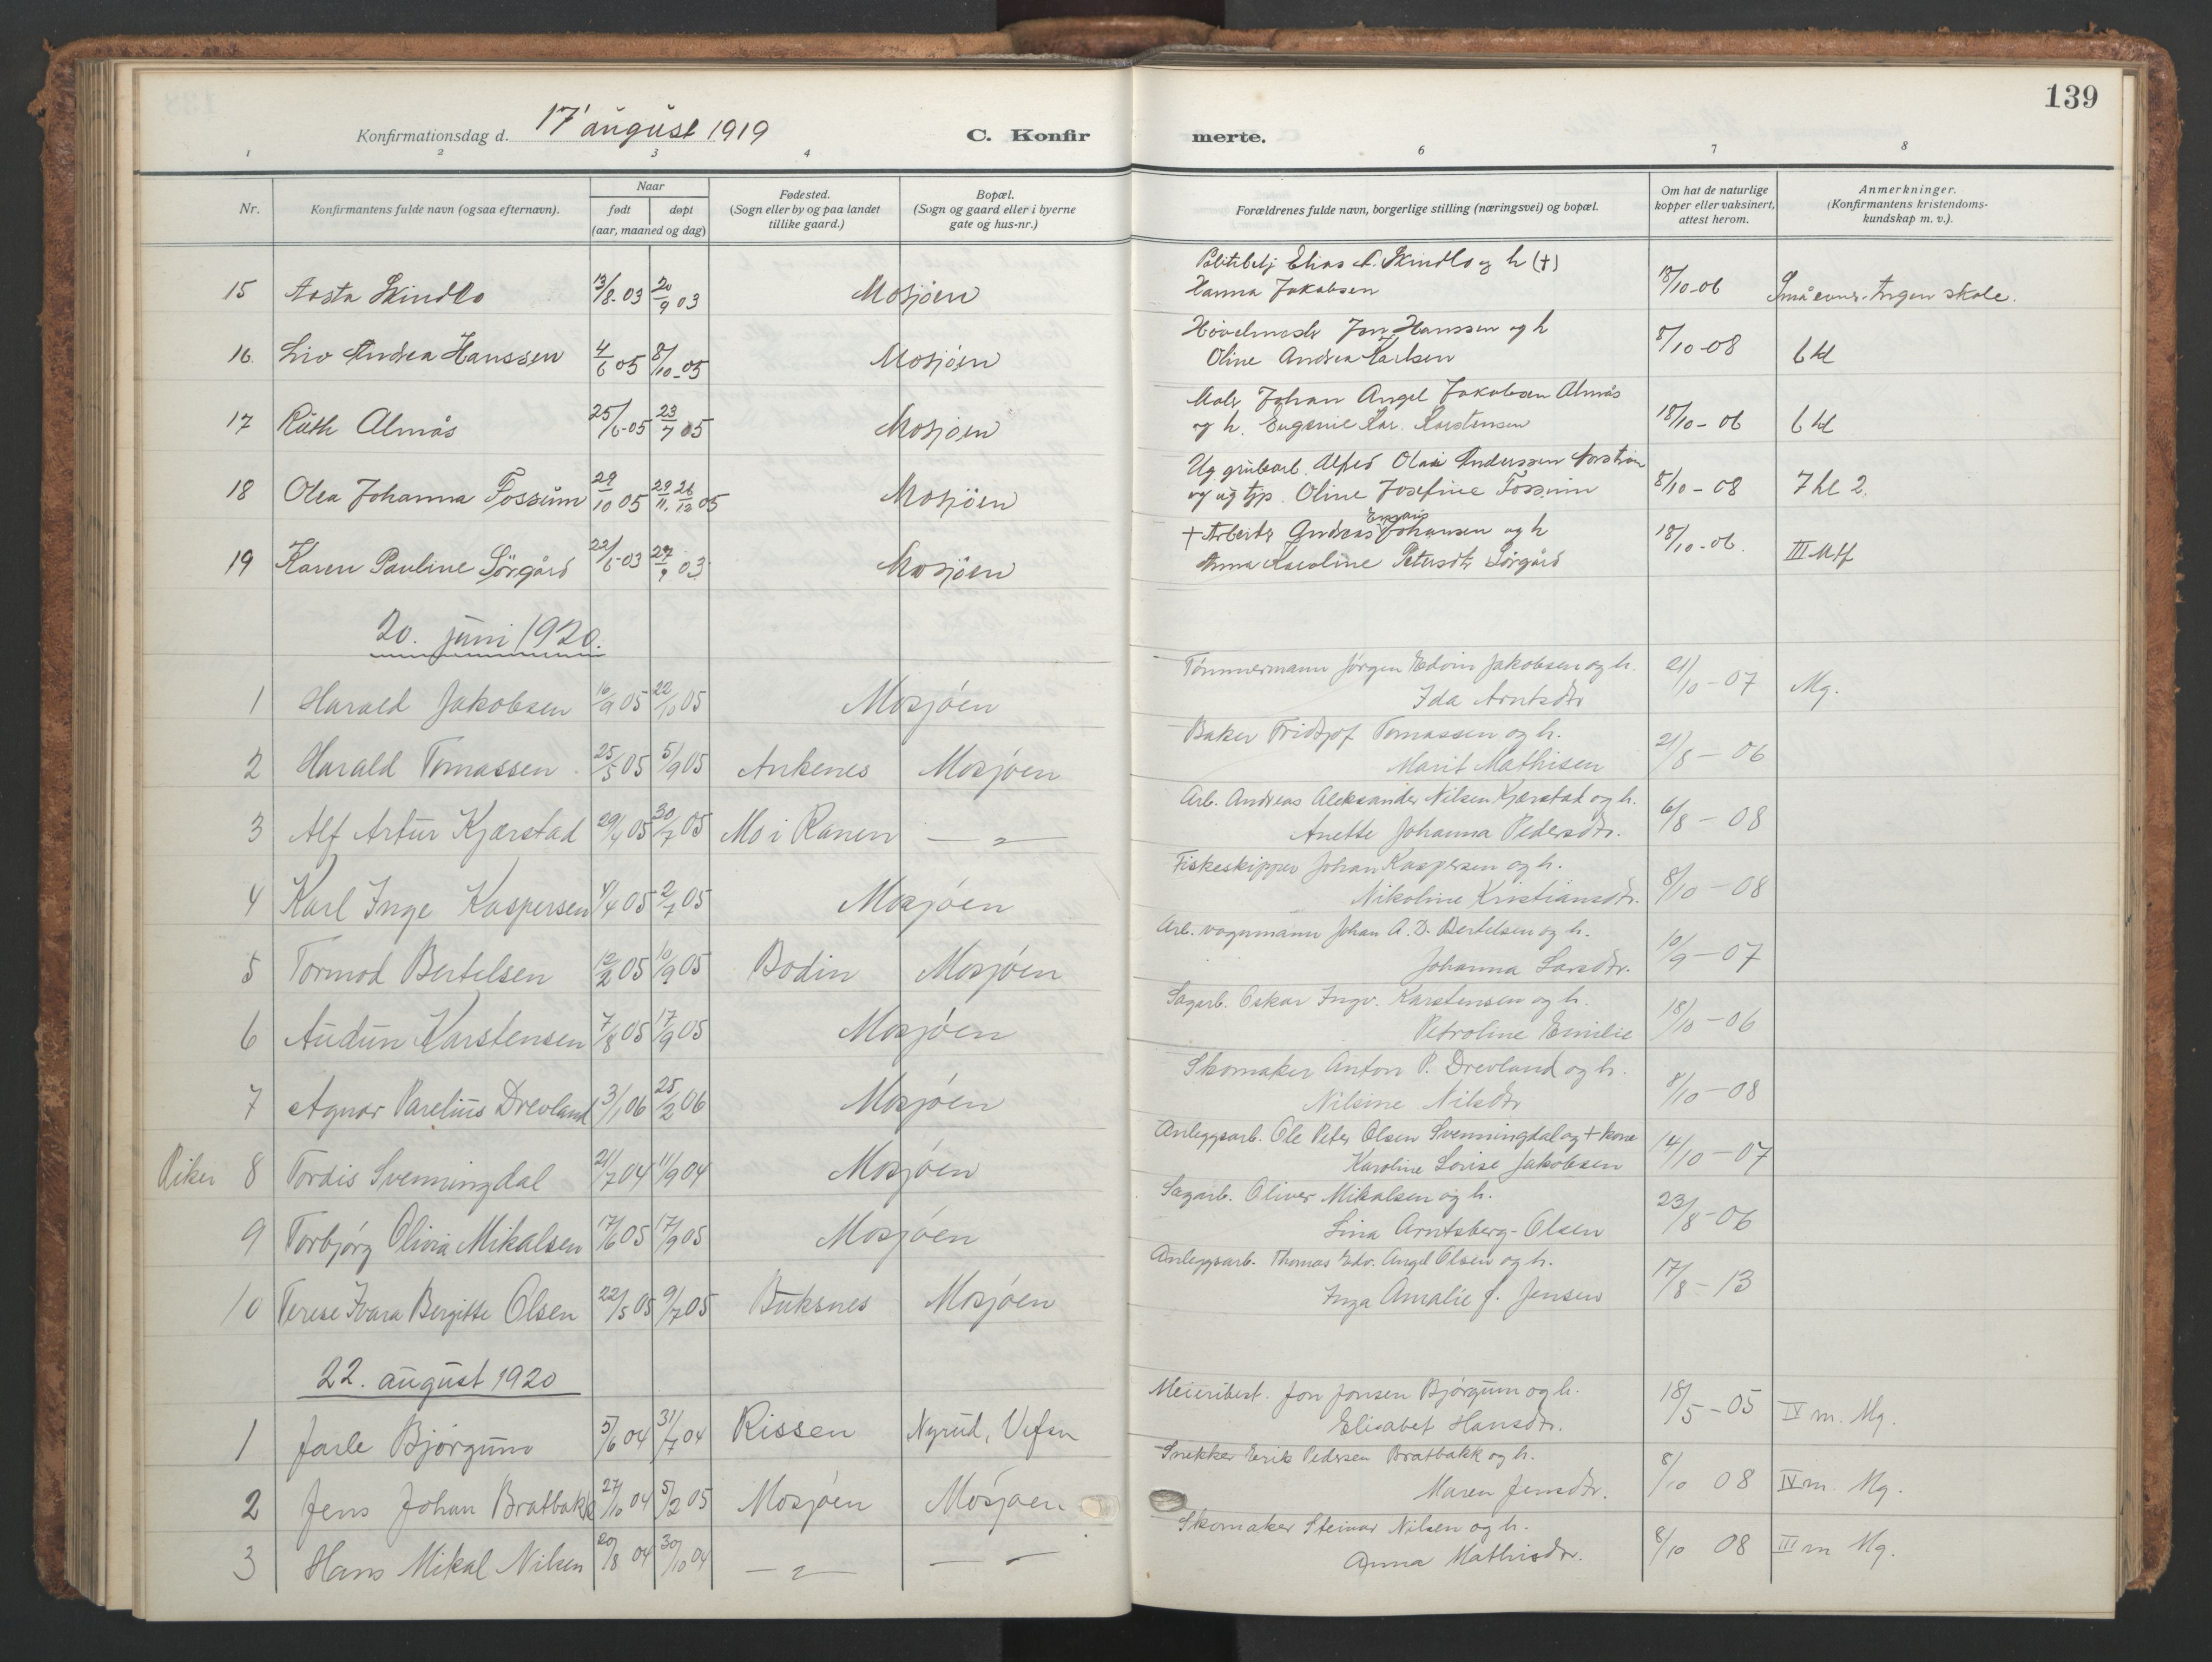 139
Konfirmationsdag d. 17' august 1919 C. Konfir merte.
1 2 3 4 6 7 8
Nr. Konfirmantens fulde navn (ogsaa efternavn). Naar født døpt (aar, maaned og dag) Fødested. (Sogn eller by og paa landet tillike gaard.) Bopæl. (Sogn og gaard eller i byerne gate og hus-nr.) Forældrenes fulde navn, borgerlige stilling (næringsvei) og bopæl. Om hat de naturlige kopper eller vaksinert, attest herom. Anmerkninger. (Konfirmantens kristendoms- kundskap m. v.).
Elias A. Skindlo og h (+)
15 Aasta Skindlo 13/8-03 20/9 03 Mosjøen Hanna Jakobsen 18/10-06 Ingen skole.
Jon Hanssen og h
16 Liv Andrea Hanssen 4/6 05 8/10-05 Mosjøen Oline Andrea Karlsen 8/10-08 6 kl
Maler Johan Angel Jakobsen Almås
17 Ruth Almås 25/6-05 23/7 05 Mosjøen og h. Eugenie Kar. Karstensen 18/10-06 6 kl
Ug. grubearb. Alfred Olai Anderssen
18 Olea Johanna Fossum 29/10 05 29/11. 26/12 05 Mosjöen og ug tjp. Oline Josefine Fossum 8/10-08 7 kl 2.
+ Arbeider Andreas Johansen og h
19 Karen Pauline Sörgård 22/6-03 27/9 03 Mosjöen Anna Karoline Petersdtr Sörgård 18/10-06. III Mtf
20. juni 1920.
Tømmermann Jørgen Edvin Jakobsen og h.
1 Harald Jakobsen 16/9 05 22/10 05 Mosjøen Ida Arntsdtr 21/10-07 Mg.
Baker Fridtjof Tomassen og h.
2 Harald Tomassen 25/5 05 5/9 05 Ankenes Mosjøen Marit Mathisen 21/8-06
Arb. Andreas Aleksander Nilsen Kjærstad og h.
3 Alf Artur Kjærstad 29/4 05 30/7 05 Mo i Ranen — " — Anette Johanna Pedersdtr. 6/8-08
Fiskeskipper Johan Kaspersen og h.
4 Karl Inge Kaspersen 4/4 05 2/7 05 Mosjøen Nikoline Kristiansdtr. 8/10-08
Arb. vognmann Johan A. D. Bertelsen og h.
5 Tormod Bertelsen 12/2 05 10/9 05 Bodin Mosjøen Johanna Larsdtr. 10/9-07
Sagarb. Oskar Ingv. Karstensen og h.
6 Audun Karstensen 7/8 05 17/9 05 Mosjøen Petroline Emilie 18/10-06
Skomaker Anton P. Drevland og h.
7 Agnar Parelius Drevland 3/1 06 25/2 06 Mosjøen Nilsine Nilsdtr 8/10-08
Anleggsarb. Ole Peter Olsen Svenningdal og + kone
Piker 8 Tordis Svenningdal 21/7 04 11/9 04 Mosjøen Karoline Lovise Jakobsen 14/10-07
Sagarb. Oliver Mikalsen og h.
9 Torbjørg Olivia Mikalsen 17/6 05 17/9 05 Mosjøen Lina Arntsberg-Olsen 23/8-06
Anleggsarb. Thomas Edv. Angel Olsen og h.
10 Terese Ivara Bergitte Olsen 22/5 05 9/7 05 Buksnes Mosjøen Inga Amalie f. Jensen 17/8-13
22. august 1920
Meieribest. Jon Jonsen Bjørgum og h.
1 Jarle Bjørgum 5/6 04 31/7 04 Rissen Nyrud, Vefsn Elisabet Hansdtr. 18/5-05 IV m. Mg.
Snekker Erik Pedersen Bratbakk og h.
2 Jens Johan Bratbakk 27/10 04 5/2 05 Mosjøen Mosjøen Maren Jensdtr. 8/10 08 IV m. Mg.
Skomaker Steinar Nilsen og h.
3 Hans Mikal Nilsen 20/8 04 30/10 04 — " — — " Anna Mathisdtr. 8/10 08 III m Mg.